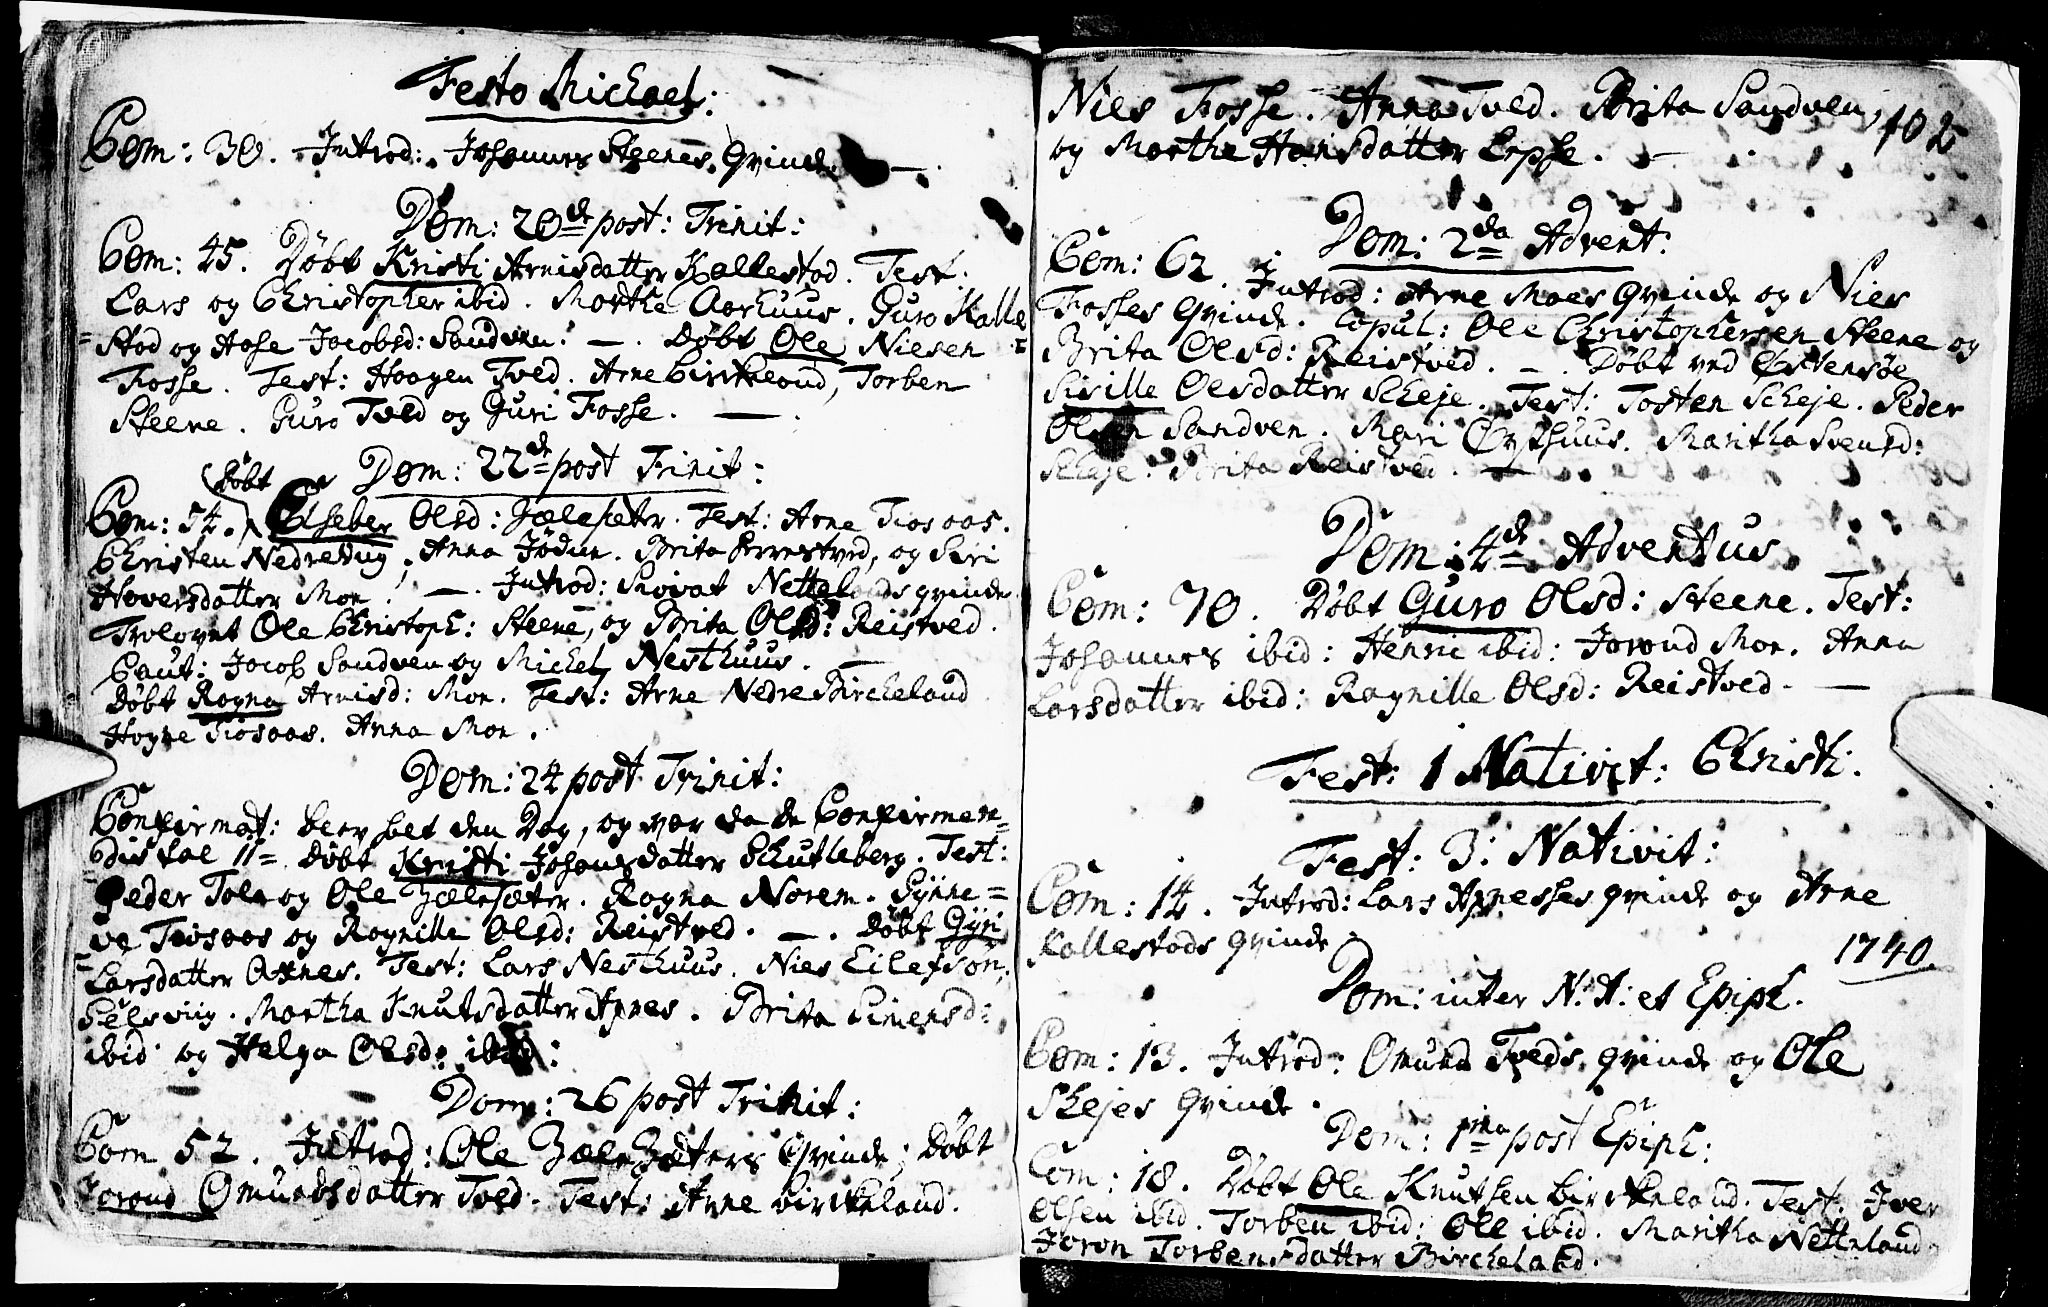 Festo Michael:
Com: 30. Introd: Johannes Steenes Qvinde. —.
Dom: 20de post: Trinit:
Com: 45. Døbt Kristi Arnisdatter Kallestad. Test:
Lars og Christopher ibid. Marthe Aarhuus. Guro Kalle
=stad og Aase Jacobsd: Sandven. —. Døbt Ole Nielsen
Fosse. Test: Haagen Tved. Arne Birkeland, Torben
Steene. Guro Tved og Guri Fosse. —.
Døbt
Dom: 22de post Trinit:
Com: 34. Elseber Olsd: Jælesæter. Test: Arne Tiosaas.
Christen Nedretvig, Anna Jødun. Brita Berrestved, og Siri
Hoversdatter Moe. —. Introd: Sjovat Nettelands qvinde
Trolovet Ole Christoph: Steene, og Brita Olsd: Reistved.
Caut: Jacob Sandven og Michel Nesthuus. —
Døbt Ragna Arnisd: Moe. Test: Arne Nedre Bircheland
Hogne Tiosaas. Anna Moe.
Dom: 24 post Trinit:
Confirmat: blev hlet den Dag, og var da de Confirmen=
=dis tal 11= Døbt Kristi Johansdatter Schutleberg. Test:
Peder Tolo og Ole Jælesæter. Ragna Norem. Gynne=
=ve Tiosaas og Ragnille Olsd: Reistved. —. Døbt Gyri
Larsdatter Axnes. Test: Lars Nesthuus. Niels Eilefsøn
Selsviig. Martha Knutsdatter Axnes. Brita Simensd:
ibid og Helga Olsd: ibid:
Dom: 26 post Trinit:
Com 52. Introd: Ole Jælesæters Qvinde; Døbt
Jorond Omundsdatter Tved. Test: Arne Birkeland.
Niels Fosse. Anna Tved. Brita Sandven,
102
og Marthe Hansdatter Lepse. —.
Dom: 2da Advent:
Com: 62. Introd: Arne Moes Qvinde og Niels
Fosses Qvinde. Copul: Ole Christophersen Steene og
Brita Olsd: Reistved. —. Døbt ved Østensøe
Sirille Olsdatter Scheje. Test: Tosten Scheje. Peder
Olsen Sandven. Mari Øysthuus. Maritha Svensd:
Scheje. Brita Reistved. —
Dom: 4de Adventus
Com: 70. Døbt Guro Olsd: Steene. Test:
Johannes ibid: Henric ibid: Jorond Moe. Anna
Larsdatter ibid: Ragnille Olsd: Reistved. —
Fest: 1 Nativit: Christi.
Fest: 3: Nativit:
Com: 14. Introd: Lars Axnesses qvinde og Arne
Kallestads qvinde
1740.
Dom: inter N: A: et Epiph.
Com: 13. Introd: Omund Tveds qvinde og Ole
Skejes qvinde.
Dom: 1ma post Epiph:
Com: 18. Døbt Ole Knutsen Birkeland. Test: Iver
Olsen ibid. Torben ibid: Ole ibid. Maritha Netteland
Joron Torbensdatter Bircheland.